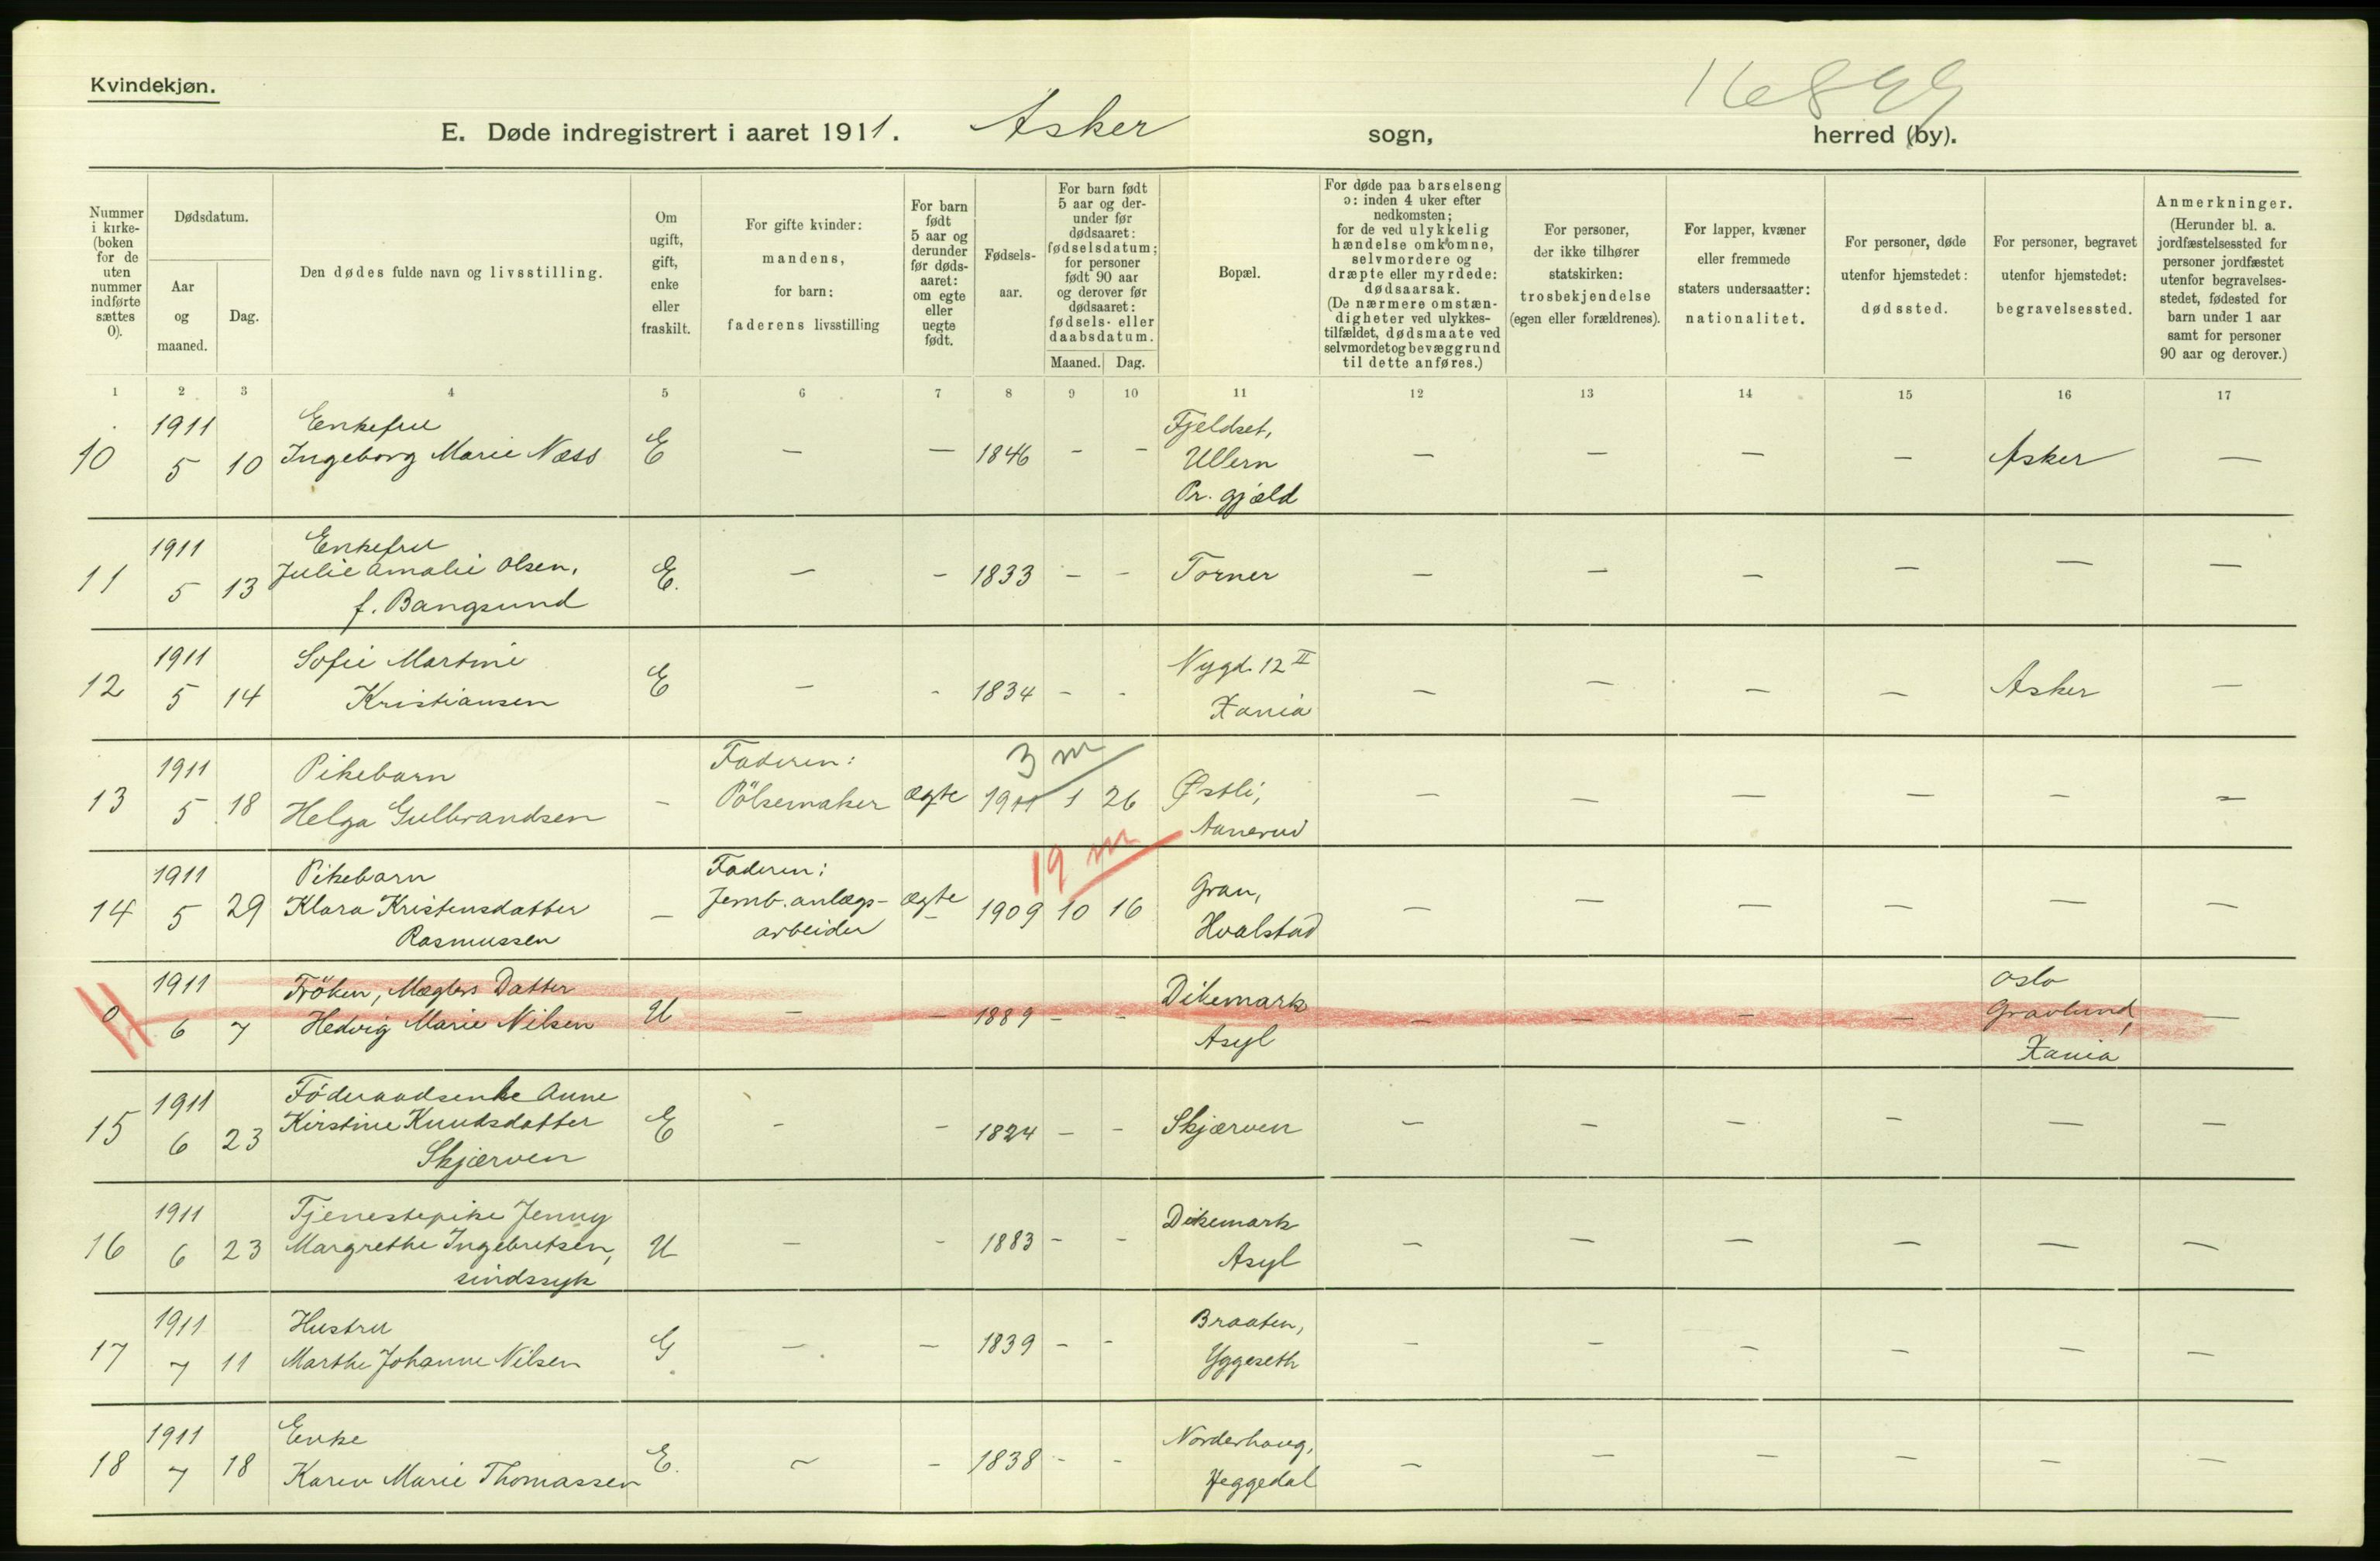 Kvindekjøn.
16899
E. Døde indregistrert i aaret 1911. Asker sogn, herred (by).
Nummer i kirke-(boken for de uten nummer indførte sættes 0).
Dødsdatum.
Aar og maaned.
Dag.
Den dødes fulde navn og livsstilling.
Om ugift, gift, enke eller fraskilt.
For gifte kvinder: mandens, for barn: faderens livsstilling
For barn født 5 aar og derunder før døds-aaret: om egte eller uegte født.
Fødsels-aar.
For barn født 5 aar og der-under før dødsaaret: fødselsdatum; for personer født 90 aar og derover før dødsaaret: fødsels- eller daabsdatum.
Maaned. Dag.
Bopæl.
For døde paa barselseng ɔ: inden 4 uker efter nedkomsten; for de ved ulykkelig hændelse omkomne, selvmordere og dræpte eller myrdede: dødsaarsak. (De nærmere omstæn-digheter ved ulykkes-tilfældet, dødsmaate ved selvmordet og bevæggrund til dette anføres.)
For personer, der ikke tilhører statskirken: trosbekjendelse (egen eller forældrenes).
For lapper, kvæner eller fremmede staters undersaatter: nationalitet.
For personer, døde utenfor hjemstedet: dødssted.
For personer, begravet utenfor hjemstedet: begravelsessted.
Anmerkninger. (Herunder bl. a. jordfæstelsessted for personer jordfæstet utenfor begravelses-stedet, fødested for barn under 1 aar samt for personer 90 aar og derover.)
1 2 3 4 5 6 7 8 9 10 11 12 13 14 15 16 17
1911 Enkefru Fjeldset,
10 5 10 Ingeborg Marie Næss E — — 1846 - - Ullern — — — — Asker —
Pr. gjæld
1911 Enkefru
11 5 13 Julie Amalie Olsen, E. — - 1833 - - Torner — — — — — —
f. Bangsund
1911 Sofie Martine Nygd. 12 II
12 5 14 Kristiansen E — - 1834 - - Xania — — — — Asker —
1911 Pikebarn Faderen: 3 m
13 5 18 Helga Gulbrandsen — Pölsemaker ægte 1911 1 26 Østli, — — — — — —
Aanerud
1911 Pikebarn Faderen: 19 m
14 5 29 Klara Kristensdatter — Jernb. anlægs- ægte 1909 10 16 Gran, — — — — — —
Rasmussen arbeider Hvalstad
1911 Fröken, Mæglers Datter Dikemark Oslo
0 6 7 Hedvig Marie Nilsen U — - 1889 - - Asyl — — — — Gravlund, —
Xania
1911 Föderaadsenke Anne
15 6 23 Kirstine Knudsdatter E - - 1824 - - Skjærven — — — — — —
Skjærven
1911 Tjenestepike Jenny Dikemark
16 6 23 Margrethe Ingebretsen, U — - 1883 - - Asyl — — — — — —
sindssyk
1911 Hustru Braaten,
17 7 11 Marthe Johanne Nilsen G — — 1839 - - Yggeseth — — — — — —
1911 Enke Norderhaug,
18 7 18 Karen Marie Thomassen E. ~ - 1838 - - Heggedal — — — — — —